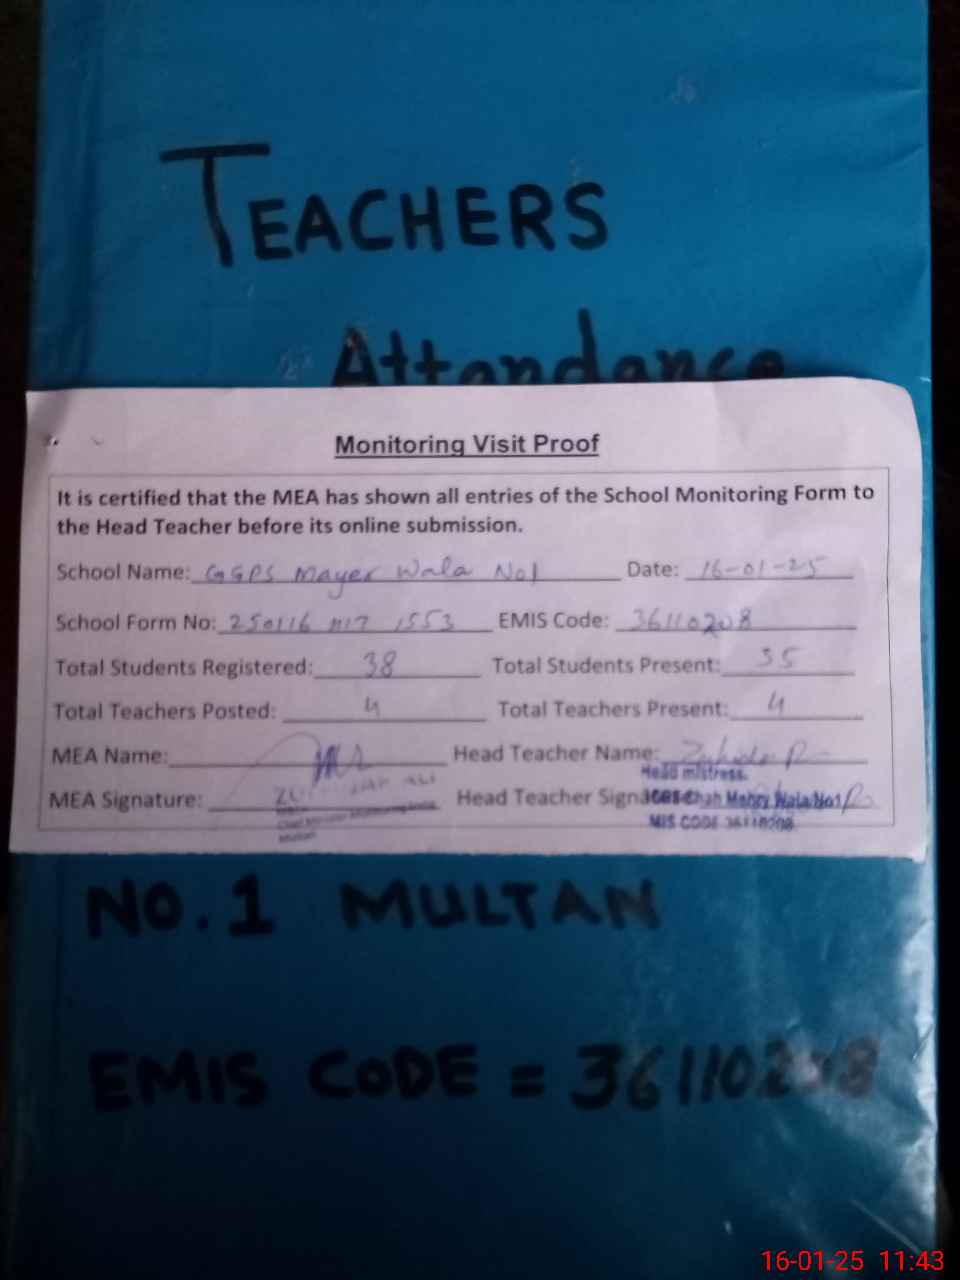 TEACHERS
Attendance
Monitoring Visit Proof
It is certified that the MEA has shown all entries of the School Monitoring Form to
the Head Teacher before its online submission.
School Name: GGPS Mayer Wala No1 Date: 16-01-25
School Form No: 250116 1553 EMIS Code: 36110208
Total Students Registered: 38 Total Students Present: 35
Total Teachers Posted: 4 Total Teachers Present: 4
MEA Name: Head Teacher Name:
Head mistress.
MEA Signature: ALI Head Teacher Wala No1
Chief Minister Monitoring
Multan
MIS CODE 36110208
NO.1 MULTAN
EMIS CODE = 36110208
16-01-25 11:43